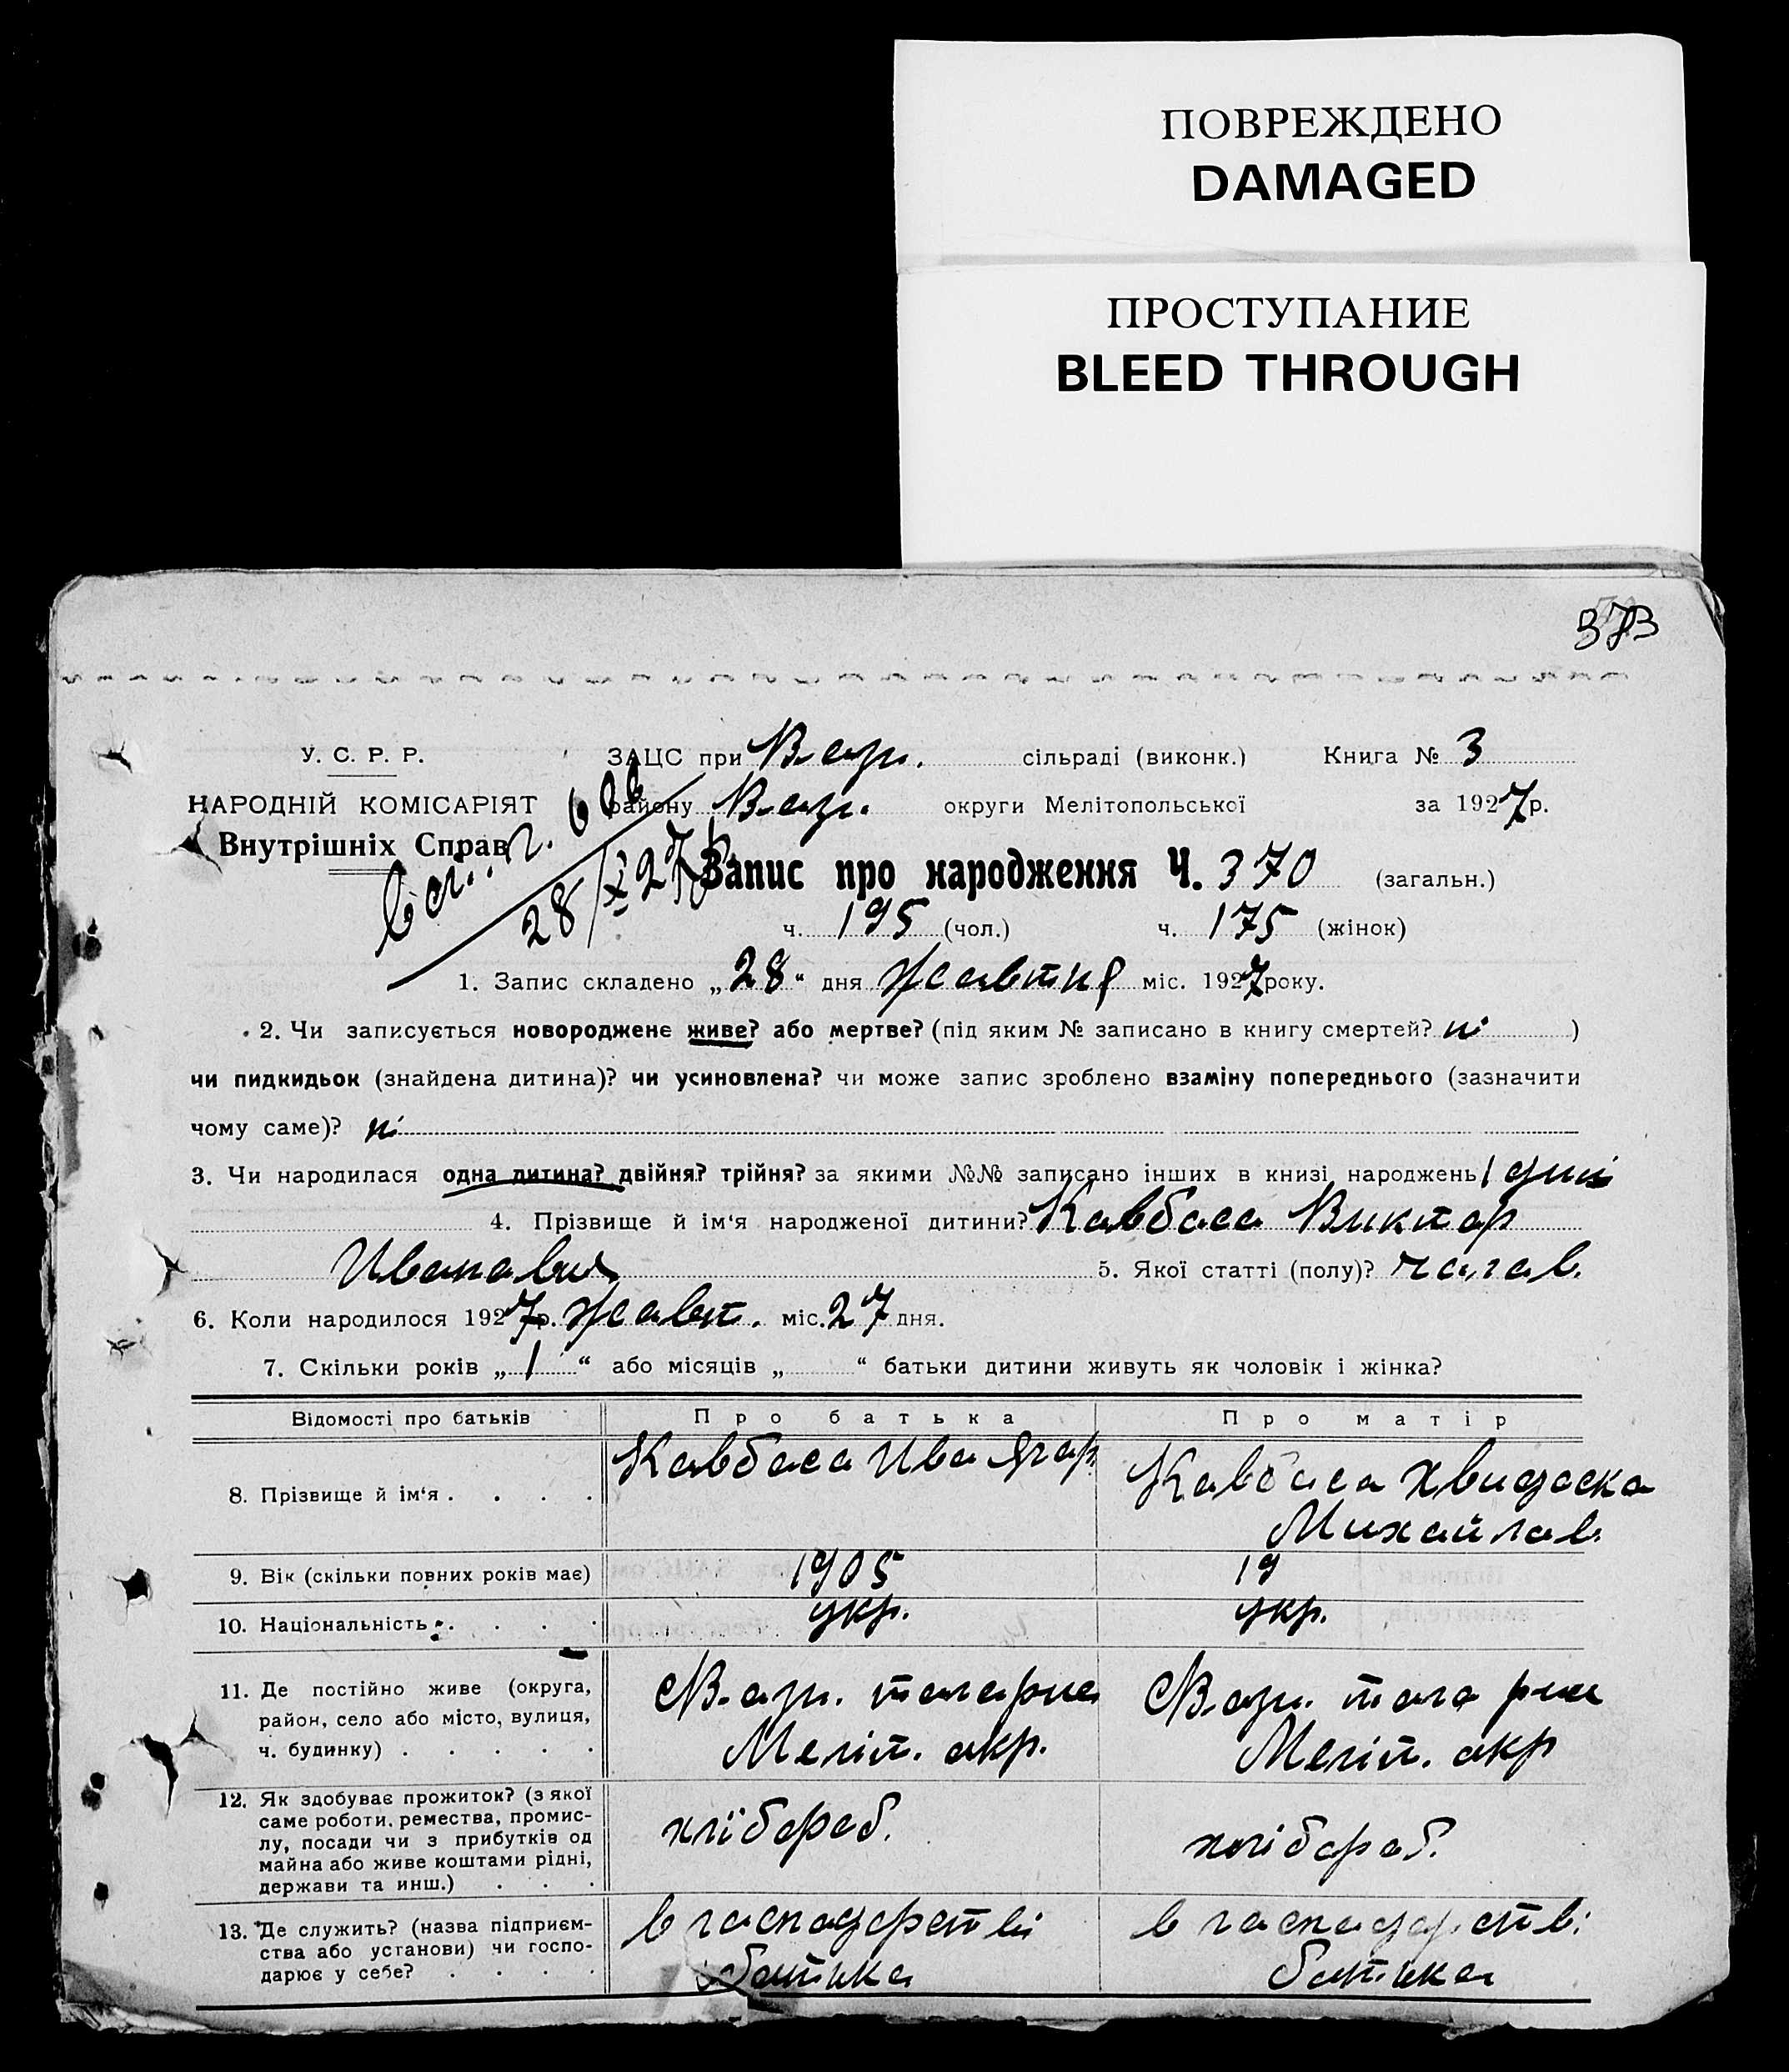 ПОВРЕЖДЕНО
DAMAGED
ПРОСТУПАНИЕ
BLEED THROUGH
373
У. С. Р. Р.
НАРОДНІЙ КОМІСАРІЯТ
Внутрішніх Справ
28/X 27
ЗАЦС при сільраді (виконк.) Книга № 3
району округи Мелітопольської за 1927р.
Запис про народження Ч. 370 (загальн.)
ч. 195 (чол.) ч. 175 (жінок)
1. Запис складено „28“ дня жавтня міс. 1927року.
2. Чи записується новороджене живе? або мертве? (під яким № записано в книгу смертей? ні )
чи пидкидьок (знайдена дитина)? чи усиновлена? чи може запис зроблено взаміну попереднього (зазначити
чому саме)? ні
3. Чи народилася одна дитина? двійня? трійня? за якими №№ записано інших в книзі народжень 1
4. Прізвище й ім'я народженої дитини? Кавбаса Виктор
Иванович 5. Якої статті (полу)? чолов.
6. Коли народилося 1927р. жавт. міс. 27 дня.
7. Скільки років „ 1 “ або місяців „ “ батьки дитини живуть як чоловік і жінка?
Відомості про батьків Про батька Про матір
8. Прізвище й ім'я Кавбаса Ива Кавбаса Хвидоска
Михайлов.
9. Вік (скільки повних років має) 1905 19
10. Національність укр. укр.
11. Де постійно живе (округа,
район, село або місто, вулиця,
ч. будинку)
Меліт. окр. Меліт. окр
12. Як здобуває прожиток? (з якої
саме роботи, ремества, промис-
лу, посади чи з прибутків од
майна або живе коштами рідні,
держави та инш.)
хлібороб. хлібороб.
13. Де служить? (назва підприєм-
ства або установи) чи госпо-
дарює у себе?
в господарстві в господарстві
батька батька